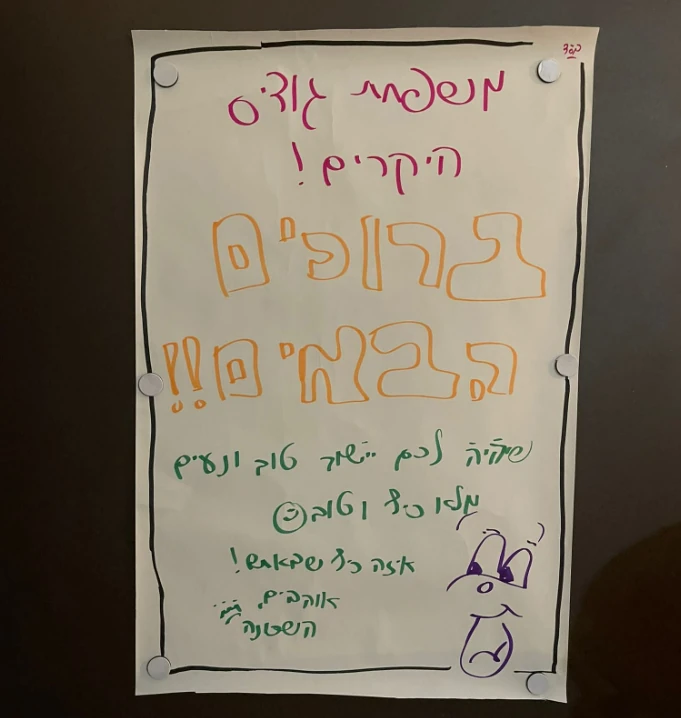 בס"ד
משפחת גודיס
היקרים!
ברוכים
הבאים!!
שיהיה לכם יישוב טוב ונעים
מלא כיף וטוב
איזה כיף שבאתם!
אוהבים,
השכונה